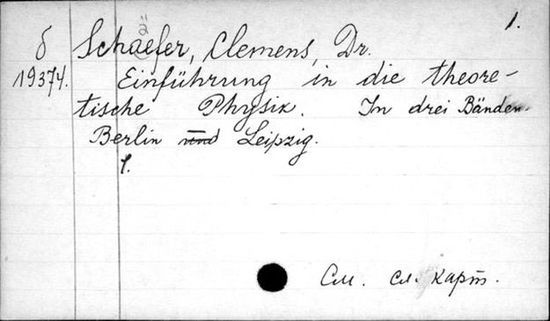 1.
δ Schaefer, Clemens, Dr.
(ä)
19374. Einführung in die theore-
tische Physik. In drei Bänden.
Berlin und Leipzig.
1.
См. сл. карт.